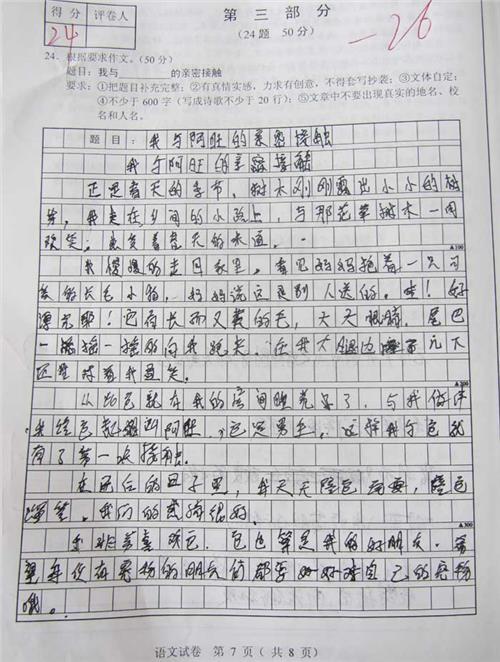 得分 评卷人
24
第三部分
(24题 50分)
-26
24. 根据要求作文。(50分)
题目：我与______的亲密接触
要求：①把题目补充完整；②有真情实感，力求有创意，不得套写抄袭；③文体自定；
④不少于600字（写成诗歌不少于20行）；⑤文章中不要出现真实的地名、校
名和人名。
题目：我与阿旺的亲密接触
我与阿旺的亲密接触
正是春天的季节，树木刚刚露出小小的树
芽，我走在乡间的小路上，与那花草树木一同
欢笑。感受着春天的味道。
▲100
我慢慢的走回家里，看见妈妈抱着一只可
爱的长毛小狗，妈妈说这是别人送的。哇！好
漂亮耶！它有长而又黄的毛，大大眼睛，尾巴
一摇一摇的向我跑来，在我大腿边 了几下
还 对着我 笑。
▲200
从此它就在我的房间 了，与我做伴
我给它起 叫阿旺，它是男生，这样我与它就
有了第一次接触。
在以后的日子里，我天天陪它玩耍，陪它
，我们的感情很好。
▲300
我非常喜欢它，它也算是我的好朋友，希
望每位有宠物的朋友们都要好好对自己的宠物
哦。
语文试卷 第7页（共8页）